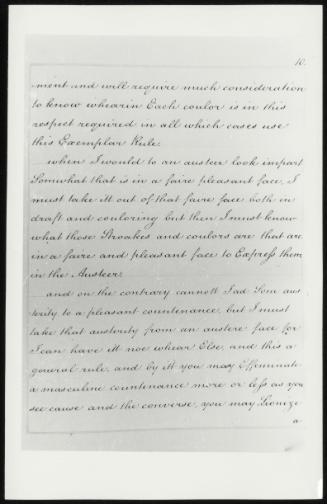 10.
ment and will require much consideration
to know whearin Each coulor is in this
respect required in all which cases use
this Exemplar Rule.
when I would to an auster look impart
Somwhat that is in a faire pleasant face, I
must take itt out of that faire face both in
draft and couloring but then I must know
what those Stroakes and coulors are that are
in a faire and pleasant face to Express them
in the Austeer.
and on the contrary cannott I ad Som aus
terity to a pleasant countenance, but I must
take that austerity from an austere face for
I can have itt noe whear Else, and this a
general rule, and by itt you may Effeminate
a masculine countinance more or less as you
see cause and the converse, you may Lionize
a